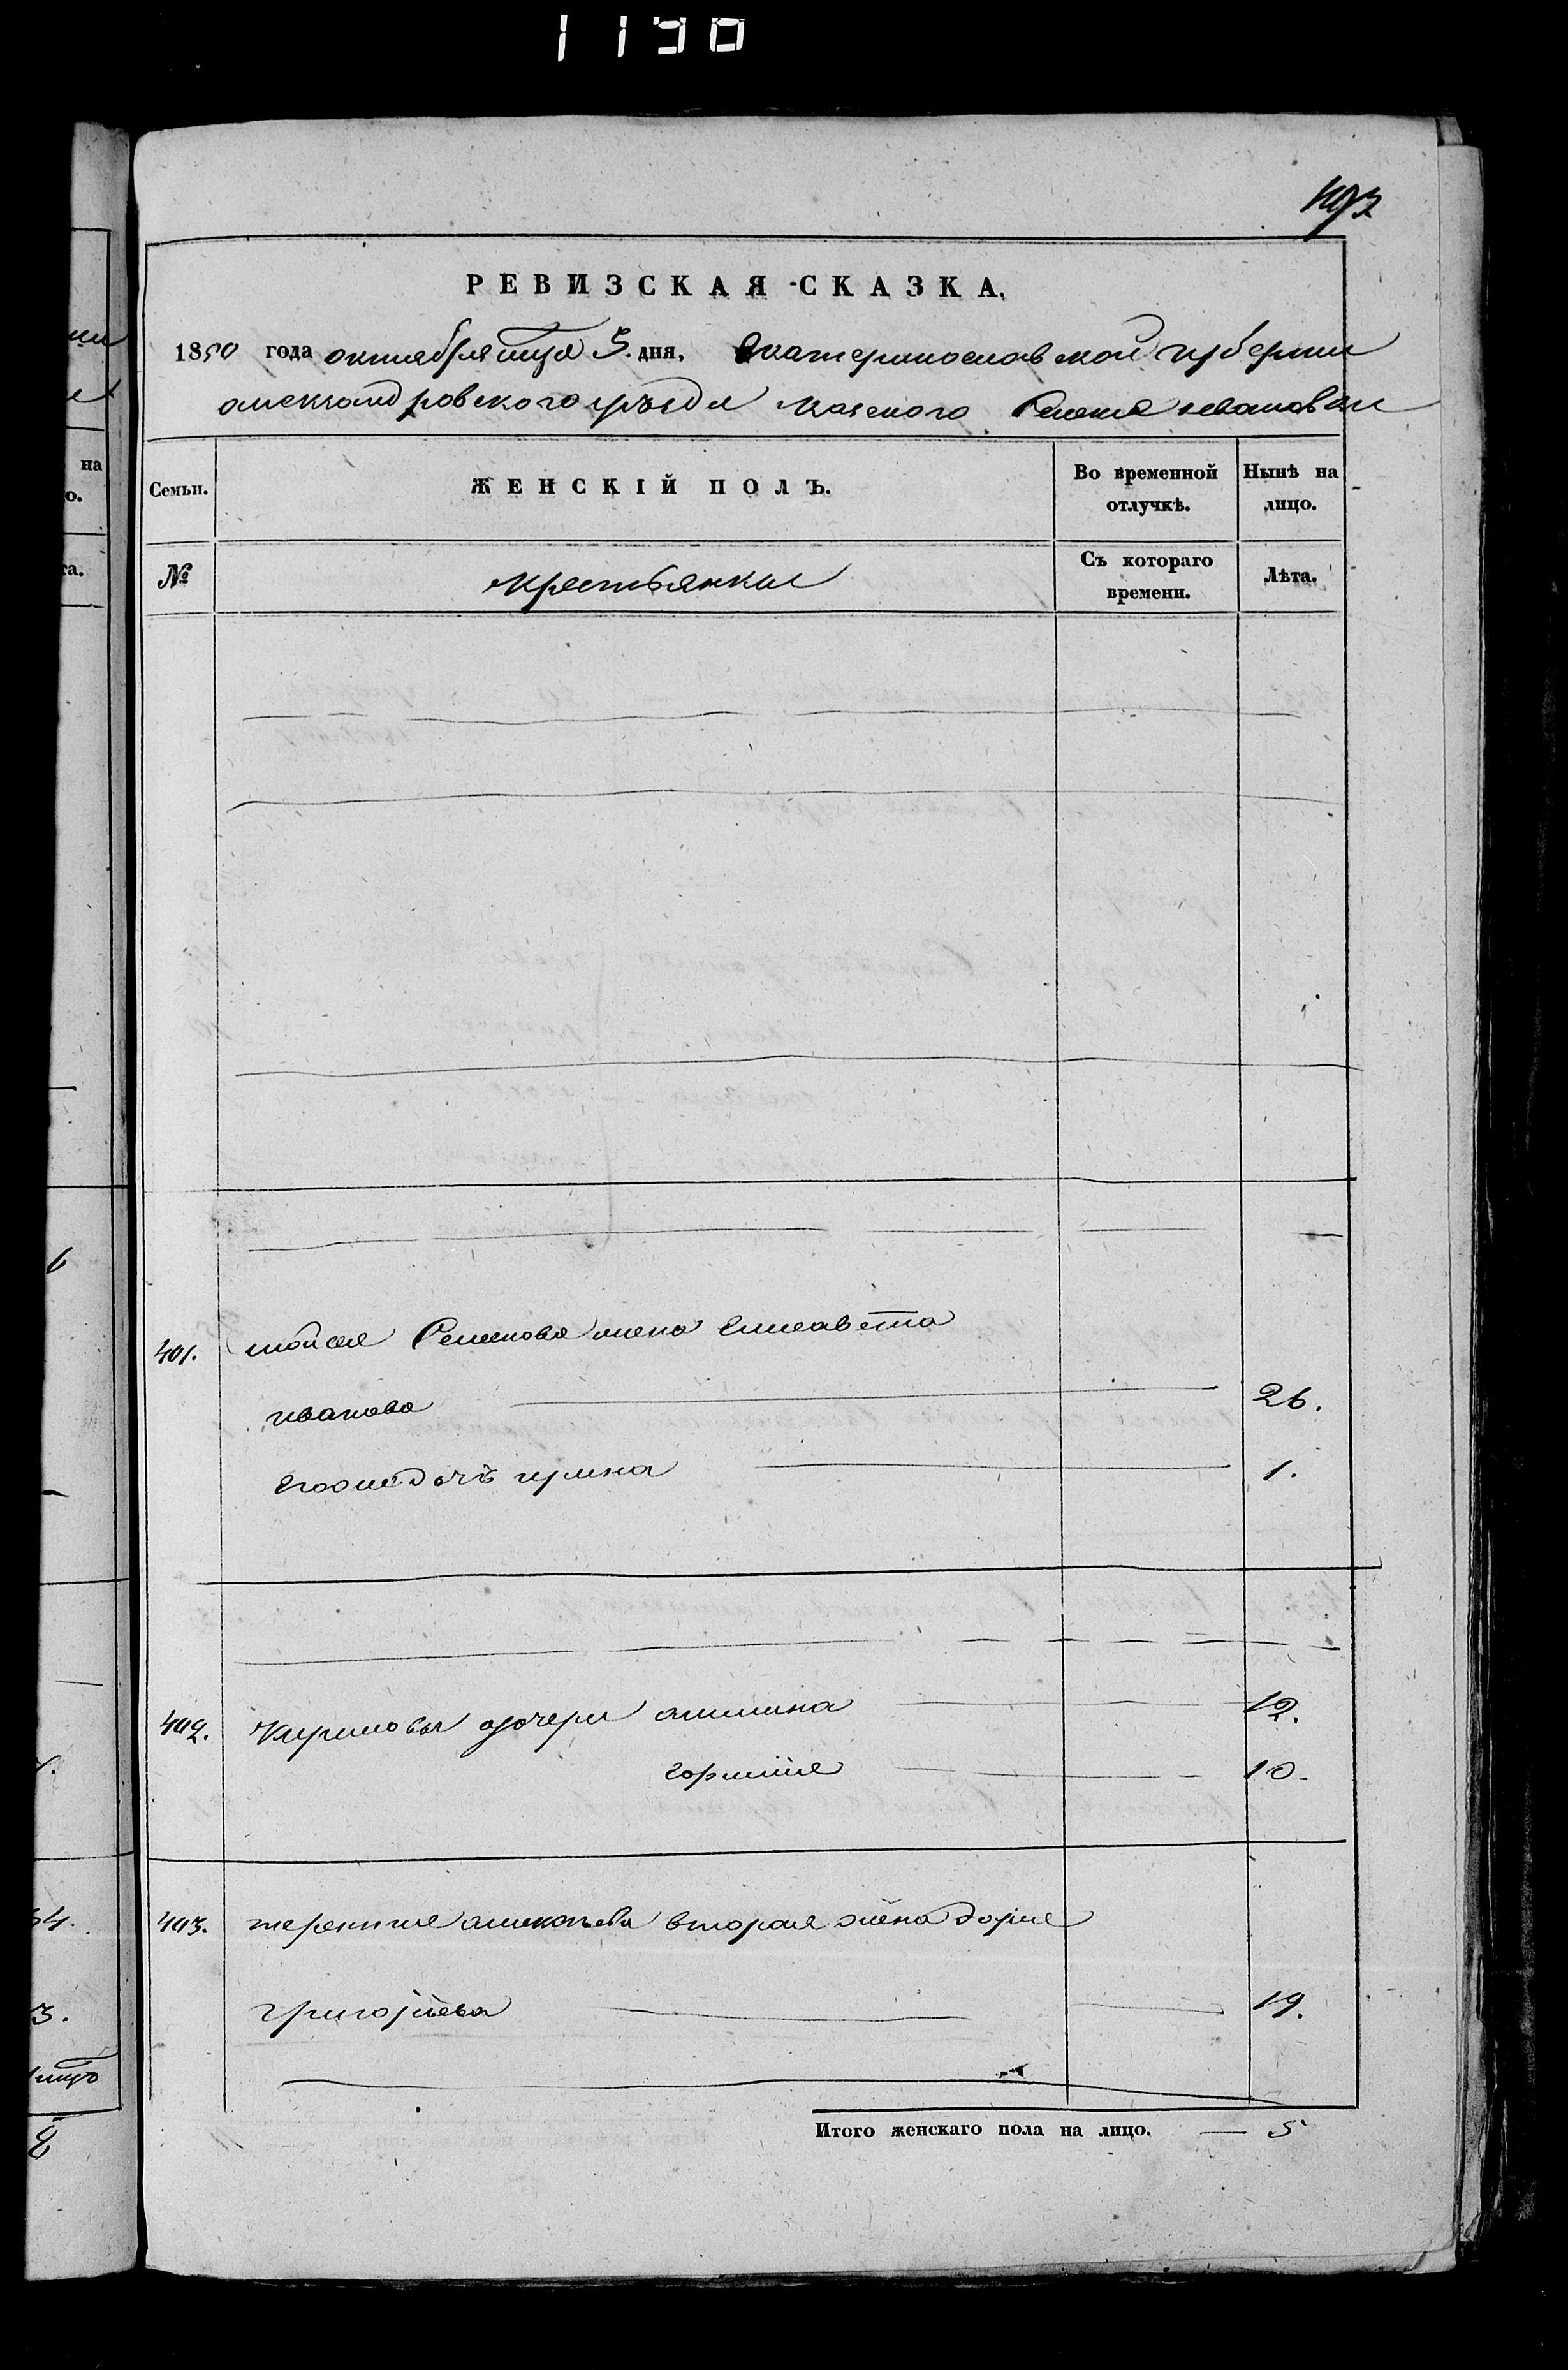 1190
РЕВИЗСКАЯ СКАЗКА.
1850 года октября мца 5. дня, Екатеринославской губернии
александровского уѣзда казеного Селения ивановки
Семьи.
ЖЕНСКІЙ ПОЛЪ.
Во временной отлучкѣ.
Нынѣ на лицо.
№
крестьянки
Съ котораго времени.
Лѣта.
401. мойсея Семенова жена Елисавета
иванова 26.
Его дочь ирина 1.
402. Кириловы дочери акилина 12.
10.
403. терентия вторая жена дария
григорьева 19.
Итого женскаго пола на лицо. 5